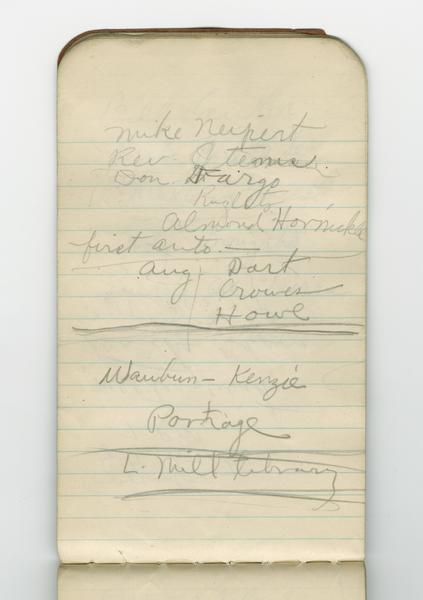 Mike Neipert
Rev.
Don Fargo
to
Almond
first auto. —
Aug Dart
Crowes
Howe
Waubun — Kenzie
Portage
L. Mill Library